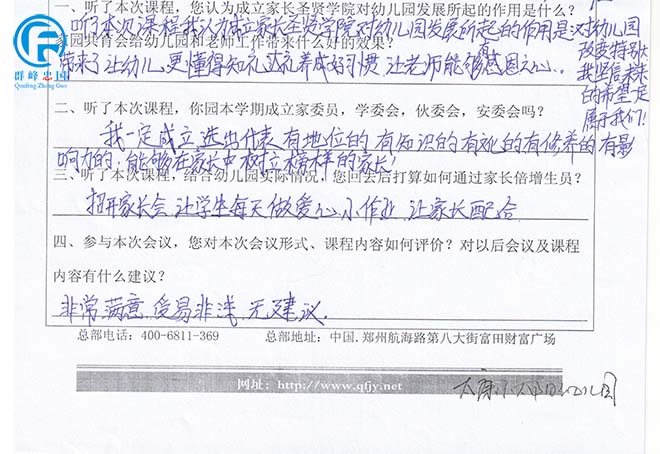 群峰忠国
Qun Feng Zhong Guo
一、听了本次课程，您认为成立家长圣贤学院对幼儿园发展所起的作用是什么？
听了本次课程我认为成立家长圣贤学院对幼儿园发展所起的作用是对幼儿园
家园共育会给幼儿园和老师工作带来什么好的效果？
改变特别大
带来了让幼儿更懂得知礼 礼养成好习惯 让老师能够感恩心。
我坚信未来
的希望一定
属于我们！
二、听了本次课程，你园本学期成立家委员，学委会，伙委会，安委会吗？
我一定成立 选出代表 有地位的 有知识的 有礼的 有修养的 有影
响力的，能够在家长中树立榜样的家长！
三、听了本次课程，结合幼儿园实际情况，您回去后打算如何通过家长倍增生员？
招开家长会 让学生每天做爱心小作业 让家长配合
四、参与本次会议，您对本次会议形式、课程内容如何评价？对以后会议及课程
内容有什么建议？
非常满意 受易非浅 无建议.
总部电话：400-6811-369 总部地址：中国.郑州航海路第八大街富田财富广场
网址：http://www.qfjy.net
幼儿园